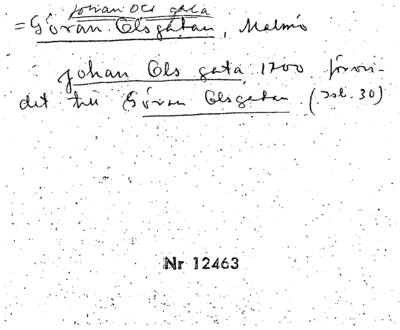 Johan Ols gata
= Göran Olsgatan, Malmö
Johan Ols gata, 1700 förvri-
det till Göran Olsgatan (Isb. 30)
Nr 12463